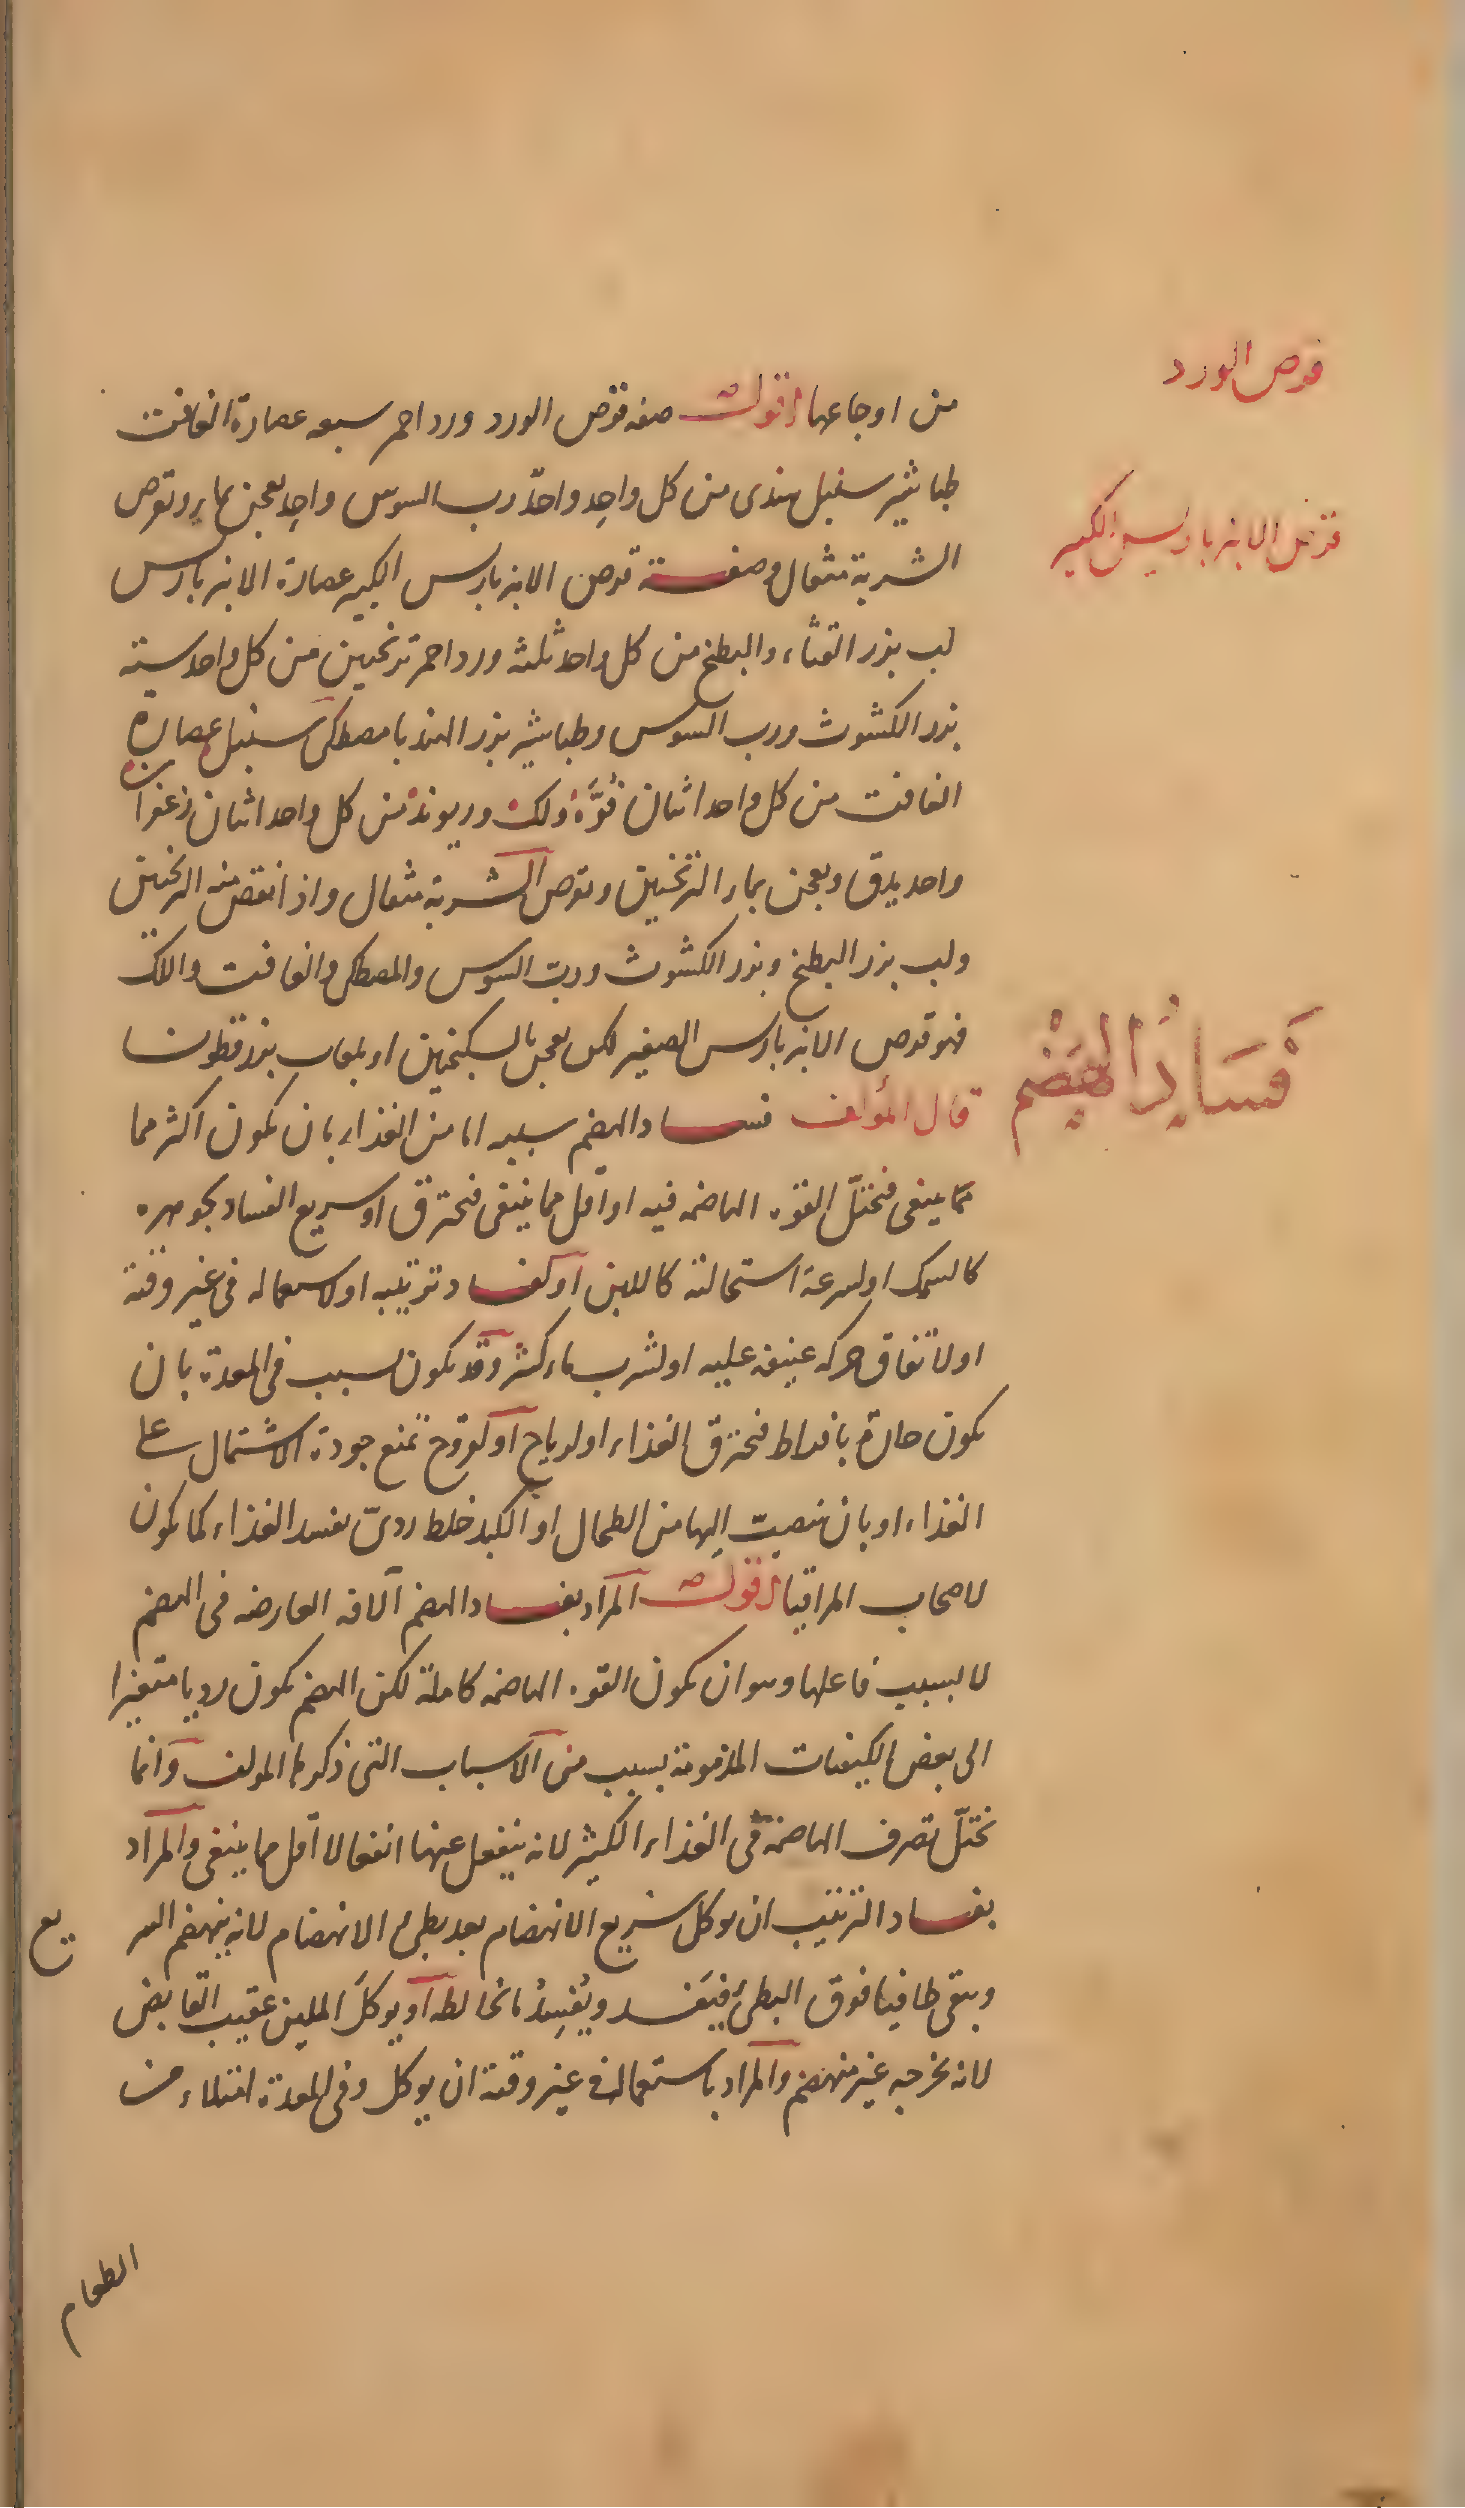 قرص الورد
من اوجاعها اقول صفه قرص الورد ورد احمر سبعه عصارة الغافت
طباشير سنبل هندى من كل واحِد واحدٌ رب السوس واحِد يعجن بماء ورد ويقرص
قرص الانبرباريس الكبير
الشربة مثقال وصفة قرص الانبرباريس الكبير عصارة الانبرباريس
لب بذر القثاء والبطيخ من كل واحد ثلثه ورد احمر ترنجبين من كل واحد ستة
بذر الكشوث ورب السوس وطباشير بذر الهندبا مصطكى سنبل عصارة
الغافت من كل واحد اثنان فُوَّة ولك وريوند من كل واحد اثنان زعفران
واحد يدق ويعجن بماء الترنجبين ويقرص الشربة مثقال واذا نقص منه الترنجبين
ولب بذر البطيخ وبذر الكشوث ورب السوس والمصطكى والغافت واللك
فهو قرص الانبرباريس الصغير لكن يعجن بالسكنجبين او بلعاب بذر قطونا
فَسَادُ الهَضْمِ
قال المؤلف فساد الهضم سببه اما من الغذاء بان يكون اكثر مما
مما ينبغى فتختلّ القوه الهاضمه فيه او اقل مما ينبغى فيحترق او سريع الفساد بجوهره
كالسمك او لسرعة استحالته كاللبن او لفساد ترتيبه او لاستعماله فى غير وقته
او لاتفاق حركه عنيفه عليه او لشرب ماء كثير وقد يكون لسبب فى المعدة بان
يكون حارة بافراط فيحترق الغذاء او لرياح او لقروح تمنع جودة الاشتمال على
الغذاء او بان ينصبّ اليها من الطحال او الكبد خلط ردىّ يفسد الغذاء كما يكون
لاصحاب المراقيا اقول المراد بفساد الهضم الآفه العارضه فى الهضم
لا لسبب فاعلها وهو ان يكون القوه الهاضمه كاملة لكن الهضم يكون رديا متغيرا
الى بعض الكيفيات المذمومة بسبب من الاسباب التى ذكرها المولف وانما
يختلّ تصرف الهاضمة فى الغذاء الكثير لانه ينفعل عنها انفعالا اقل مما ينبغى والمراد
بفساد الترتيب ان يوكل سريع الانهضام بعد بطىء الانهضام لانه ينهضم السر
يع
ويبقى طافيا فوق البطىء فيَفسد ويُفسِدُ ما يخالطه او يوكل الملين عقيب القابض
لانه يخرجه غير منهضم والمراد باستعماله فى غير وقته ان يوكل وفى المعدة امتلاء من
الطعام